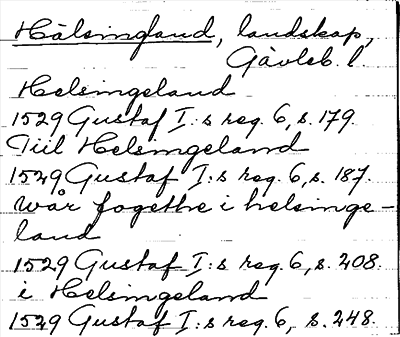 Hälsingland, landskap,
Gävleb. l.
Helsingeland
1529 Gustaf I:s reg. 6, s. 179.
Till Helsingeland
1529 Gustaf I:s reg. 6, s. 187.
wår fogethe i helsinge-
land
1529 Gustaf I:s reg. 6, s. 208.
i Helsingeland
1529 Gustaf I:s reg. 6, s. 248.